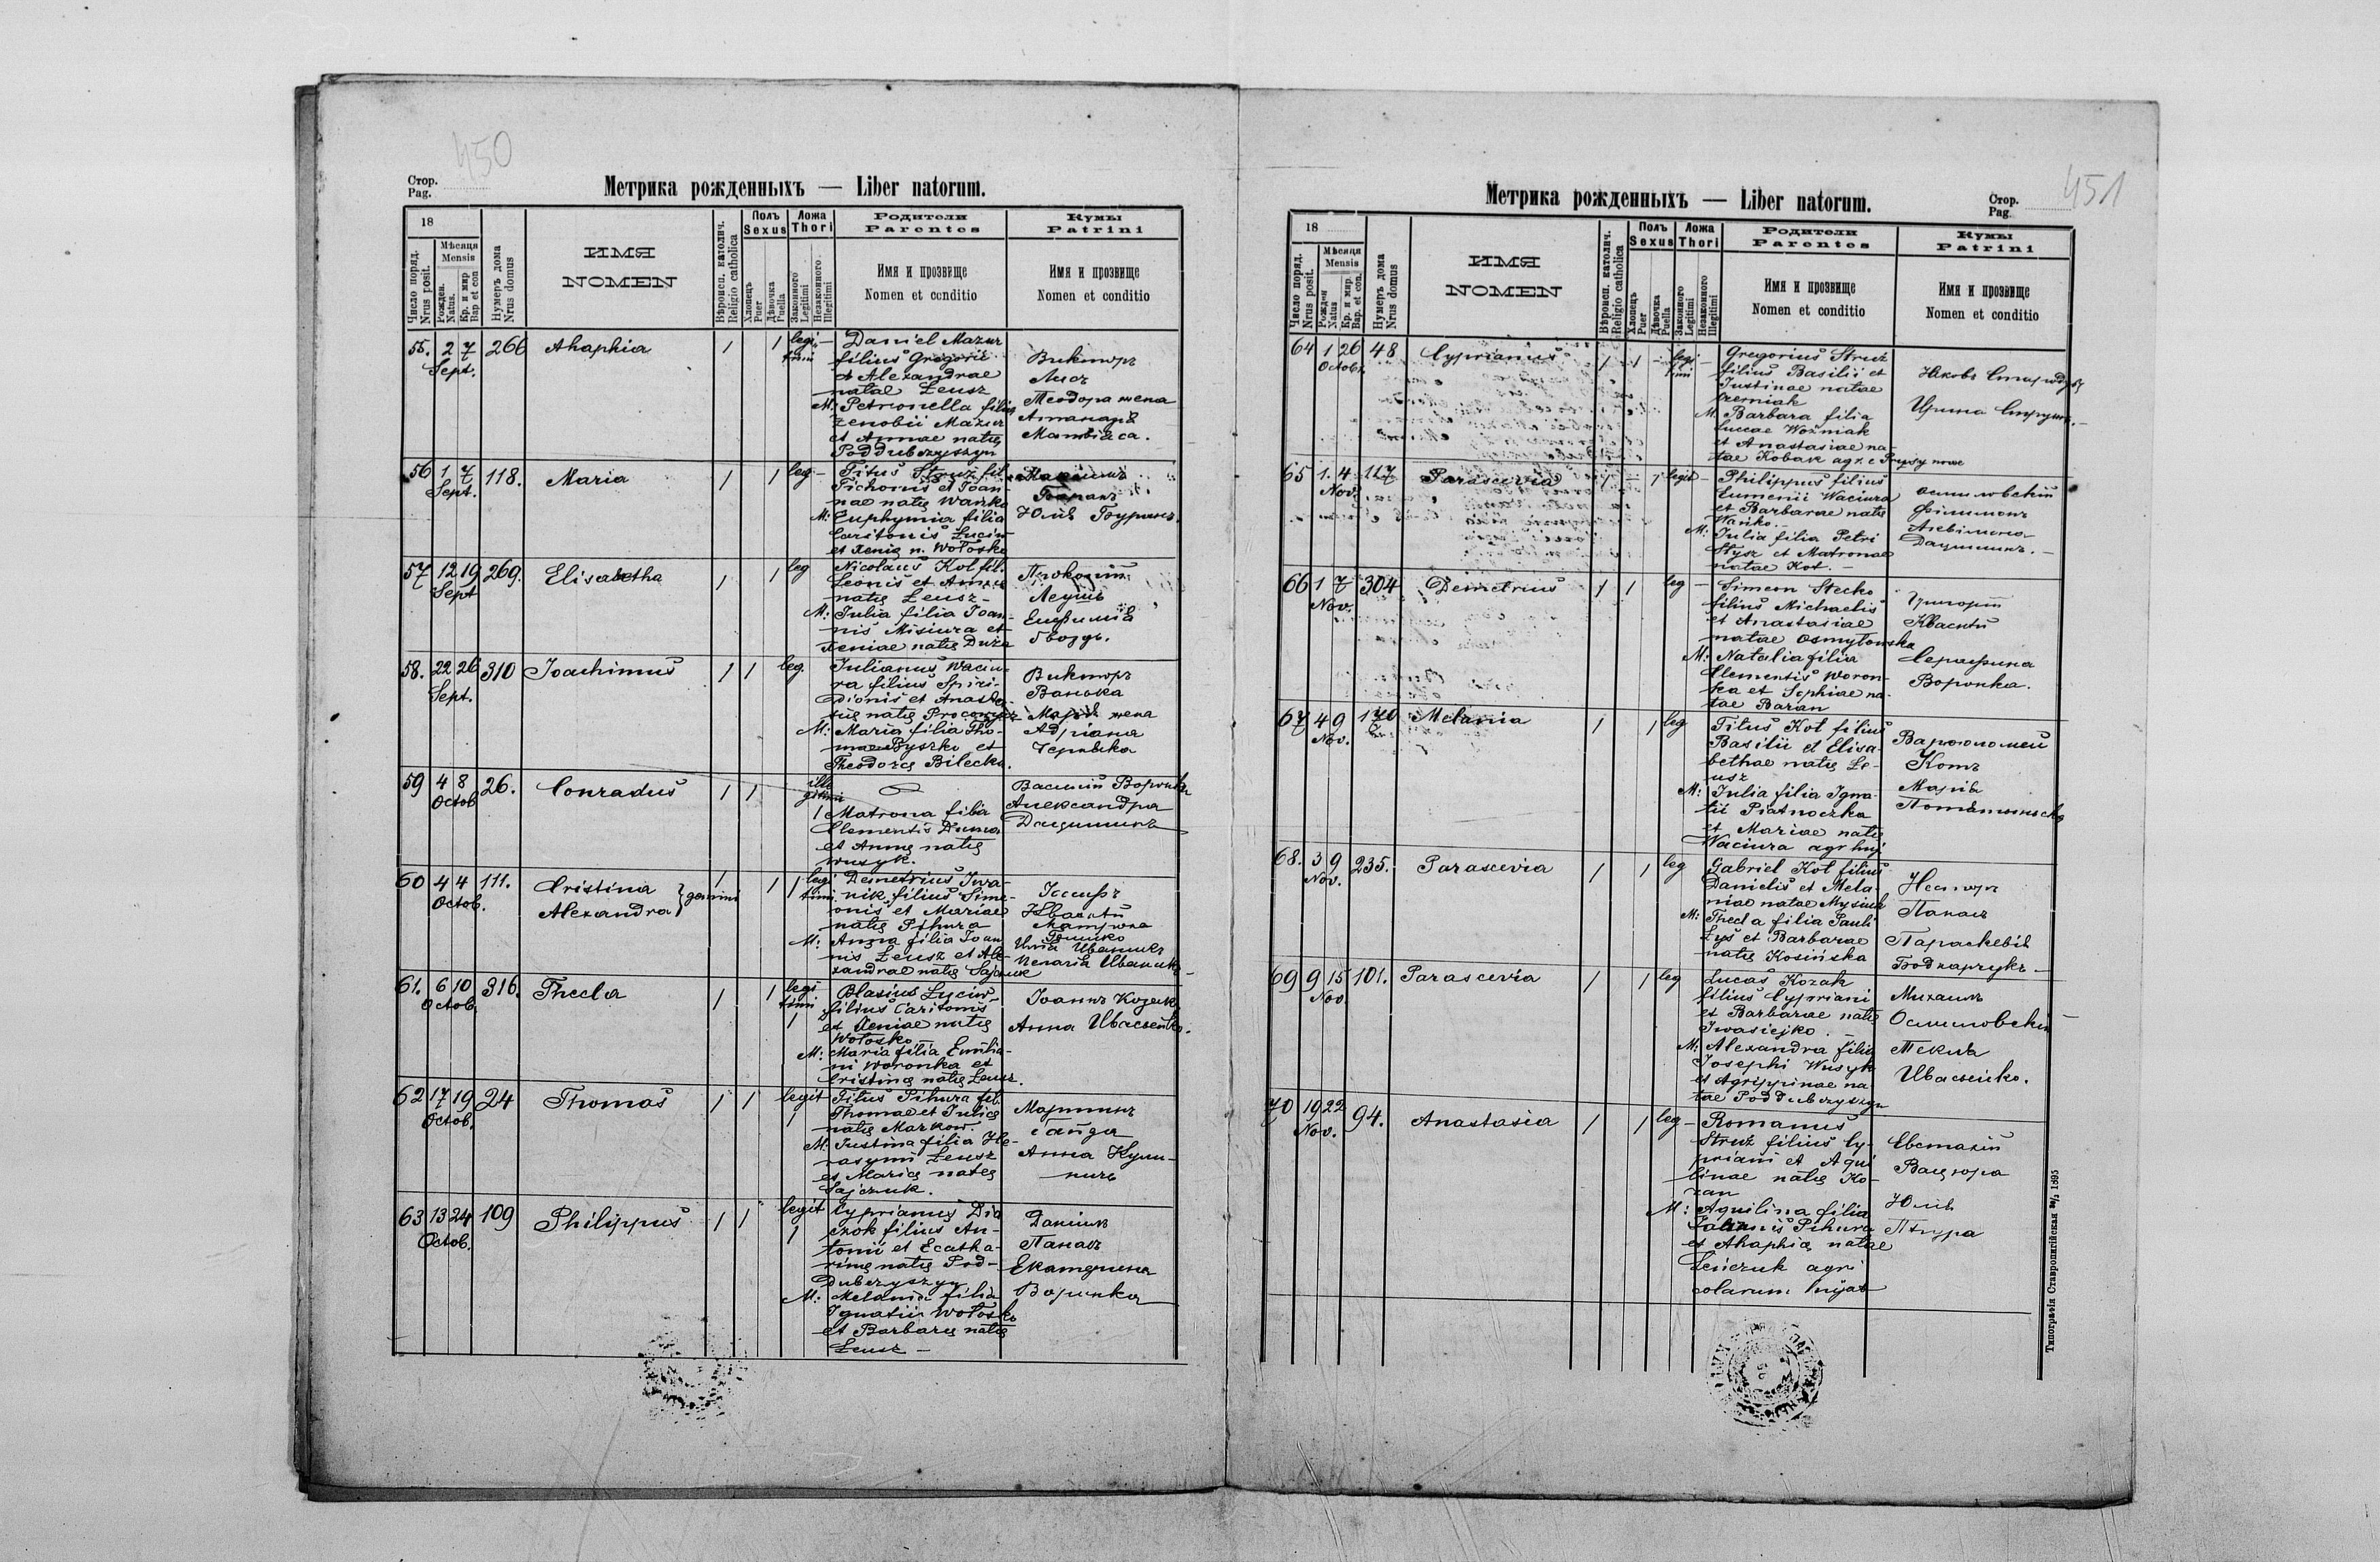 450
Стор.
Pag.
Метрика рожденныхъ — Liber natorum.
18
Число поряд.
Nrus posit.
Мѣсяця
Mensis
Рожден.
Natus.
Кр. и мир
Bap. et con
Нумеръ дома
Nrus domus
ИМЯ
NOMEN
Вѣроисп. католич.
Religio catholica
Полъ
Sexus
Хлопецъ
Puer
Дѣвочка
Puella
Ложа
Thori
Законного
Legitimi
Незаконного
Illegitimi
Родители
Parentes
Имя и прозвище
Nomen et conditio
Кумы
Patrini
Имя и прозвище
Nomen et conditio
55. 2 7 266 Ahaphia 1 1 legi-
Sept. timi
Daniel Mazur
filius Gregorii
et Alexandrae
natae Łeusz
M: Petronella filia
Zenobii Mazur
et Annae natę
Poddubczyszyn
Викторъ
Лысъ
Теодора жена
56 1 7 118. Maria 1 1 leg-
Sept.
Titus Struź fil.
Tichonis et Joan-
nae natę Wańko
M: Euphymia filia
Caritonis Łuciw
et Xenię n. Wołosko
57 12 19 269. Elisabetha 1 1 leg
Sept
Nicolaus Kot fil.
Leonis et Annae
natę Łeusz-
M: Julia filia Joan-
nis Misiura et
Xeniae natę Duża
Прокопій
Леушъ
58. 22 26 310 Joachimus 1 1 leg.
Sept.
Julianus Waciu-
ra filius Spiri-
dionis et Anasta-
M: Maria filia Tho-
mae Pyszko et
Theodorę Bilecka.
Викторъ
Ванька
Марія жена
Адріана
59 4 8 26. Conradus 1 1 ille
Octob gitimi
1 Matrona filia
Clementis Duma
et Annę natę
Wusyk.
Василій Воронка
Александра
Дацишинъ
60 4 4 111. Cristina } gemini 1 1 1 legi
Octob. Alexandra timi.
Demetrius Iwa-
nik filius Sime-
onis et Mariae
natę Pihura
M: Anna filia Joan
nis Łeusz et Ale-
xandrae natę Sajczuk
Іосифъ
61. 6 10 316. Thecla 1 1 legi
Octob. timi
1
Blasius Łuciw-
filius Caritonis
et Xeniae natę
Wołosko
M: Maria filia Emilia-
ni Woronka et
Cristinę natę Łeusz.
Іоаннъ Козакъ
Анна Ивасейко.
62 17 19 24 Thomas 1 1 legit
Octob. 1
Titus Pihura fil.
Thomae et Julię
natę Markow.
M. Justina filia He-
rasymi Łeusz
et Marię natę
Sajczuk.
Мартинъ
Гайда
Анна
63 13 24 109 Philippus 1 1 legit
Octob. 1
Cyprianus Dia
czok filius An-
tonii et Ecatha-
rinę natę Pod-
dubczyszyn
M: Melania filia
Ignatii Wołosko
et Barbarę natę
Łeusz -
Даніилъ
Панасъ
Екатерина
Воронка
451
Метрика рожденныхъ — Liber natorum.
Стор.
Pag.
18
Число поряд.
Nrus posit.
Мѣсяця
Mensis
Рожден
Natus
Кр. и мир.
Bap. et con.
Нумеръ дома
Nrus domus
ИМЯ
NOMEN
Вѣроисп. католич.
Religio catholica
Полъ
Sexus
Хлопецъ
Puer
Дѣвочка
Puella
Ложа
Thori
Законного
Legitimi
Незаконного
Illegitimi
Родители
Parentes
Имя и прозвище
Nomen et conditio
Кумы
Patrini
Имя и прозвище
Nomen et conditio
64 1 26 48 Cyprianus 1 1 - legi -
Octobr. timi
Gregorius Struź
filius Basilii et
Justinae natae
M. Barbara filia
Luccae Woźniak
et Anastasiae na-
tae Kobak agr. e
Яковъ
Ирина
65 1. 4 117 Parascevia 1 - 1 legit -
Nov.
Philippus filius
Eumenii Waciura
et Barbarae natę
Wańko.-
M: Julia filia Petri
Stysz et Matronae
natae Kot. -
Осмиловскій
Филимонъ
Дацишинъ. -
66 1 7 304 Demetrius 1 1 leg -
Nov.
Simeon Stecko
filius Michaelis
et Anastasiae
natae Osmyłowska
M: Natalia filia
Clementis Woron-
ka et Sophiae na-
tae Baran
Григорій
Серафина
Воронка.
67 4 9 170 Melania 1 1 leg
Nov.
Titus Kot filius
Basilii et Elisa-
bethae natę Łe-
usz
M: Julia filia Igna-
tii Piatnoczka
et Mariae natę
Waciura agr huj.
Варѳоломей
Котъ
Марія
68. 3 9 235. Parascevia 1 1 leg
Nov.
Gabriel Kot filius
Danielis et Mela-
niae natae Mysiuk
M: Thecla filia Pauli
Łys et Barbarae
natę Kosińska
Несторъ
Панасъ
Параскевія
Боднарчукъ -
69 9 15 101. Parascevia 1 1 leg
Nov.
Lucas Kozak
filius Cypriani
et Barbarae natę
Iwasiejko. -
M: Alexandra filia
Josephi Wusyk
et Agrippinae na-
tae Poddubczyszyn
Михаилъ
Осмиловскій
Текля
Ивасейко.
70 19 22 94. Anastasia 1 1 leg -
Nov.
Romanus
Struź filius Cy-
priani et Aqui
linae natę Ko-
zan
M: Aquilina filia
Joannis Pihura
et Ahaphię natae
agri
colarum hujat
Евстахій
Вацюра
Юлія
Пігура
Типографія Ставропигійская 1895